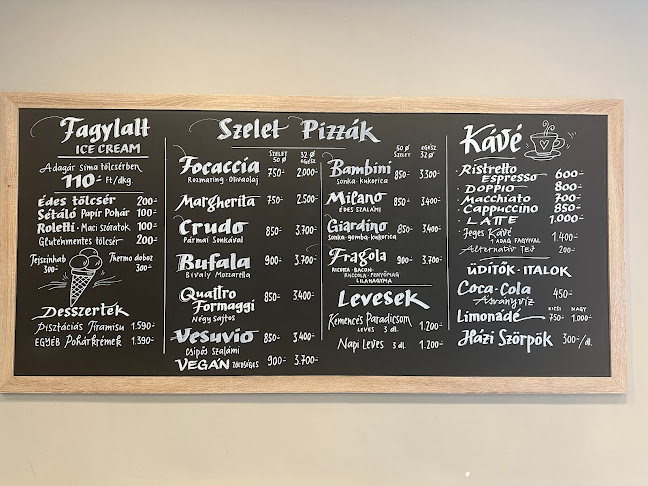 Fagylalt
ICE CREAM
A dagár sima tölcsérben
110.- Ft/dkg.
Édes tölcsér 200-
Sétáló Papír Pohár 100-
Roletti · Maci szóratok 100-
Gluténmentes tölcsér 200-
Tejszínhab 300-
Thermo doboz 300-
Desszertek
Pisztáciás Tiramisu 1.590-
EGYÉB Pohárkrémek 1.390-
Szelet Pizzák
SZELET 50 Ø
32 Ø EGÉSZ
Focaccia 750- 2.000-
Rozmaring · Olivaolaj
Margherita 750- 2.500-
Crudo 850- 3.700-
Pármai Sonkával
Bufala 900- 3.700-
Bivaly Mozzarella
Quattro Formaggi 850- 3.400-
Négy sajtos
Vesuvio 850- 3.400-
Csípős Szalámi
VEGÁN ZÖLDSÉGES 900- 3.700-
50 Ø SZELET
EGÉSZ 32 Ø
Bambini 850- 3.300-
Sonka · kukorica
Milano 850- 3.400-
ÉDES SZALÁMI
Giardino 850- 3.400-
Sonka · gomba · kukorica
Fragola 900- 3.700-
RICOTTA · BACON ·
RUCCOLA · FENYŐMAG
LILAHAGYMA
Levesek
Kemencés Paradicsom
LEVES 3 dl. 1.200-
Napi Leves 3 dl. 1.200-
Kávé
· Ristretto
Espresso 600-
· DOPPIO 800-
· Macchiato 700-
· Cappuccino 850-
· LATTE 1.000-
Jeges Kávé
1 ADAG FAGYIVAL 1.400-
Alternatív Tej 200-
ÜDÍTŐK · ITALOK
Coca · Cola
Ásványvíz 450-
KICSI NAGY
Limonádé 750- 1.000-
Házi Szörpök 300-/dl.